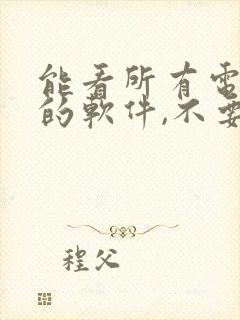 能看所有電
的軟件,不要
程父